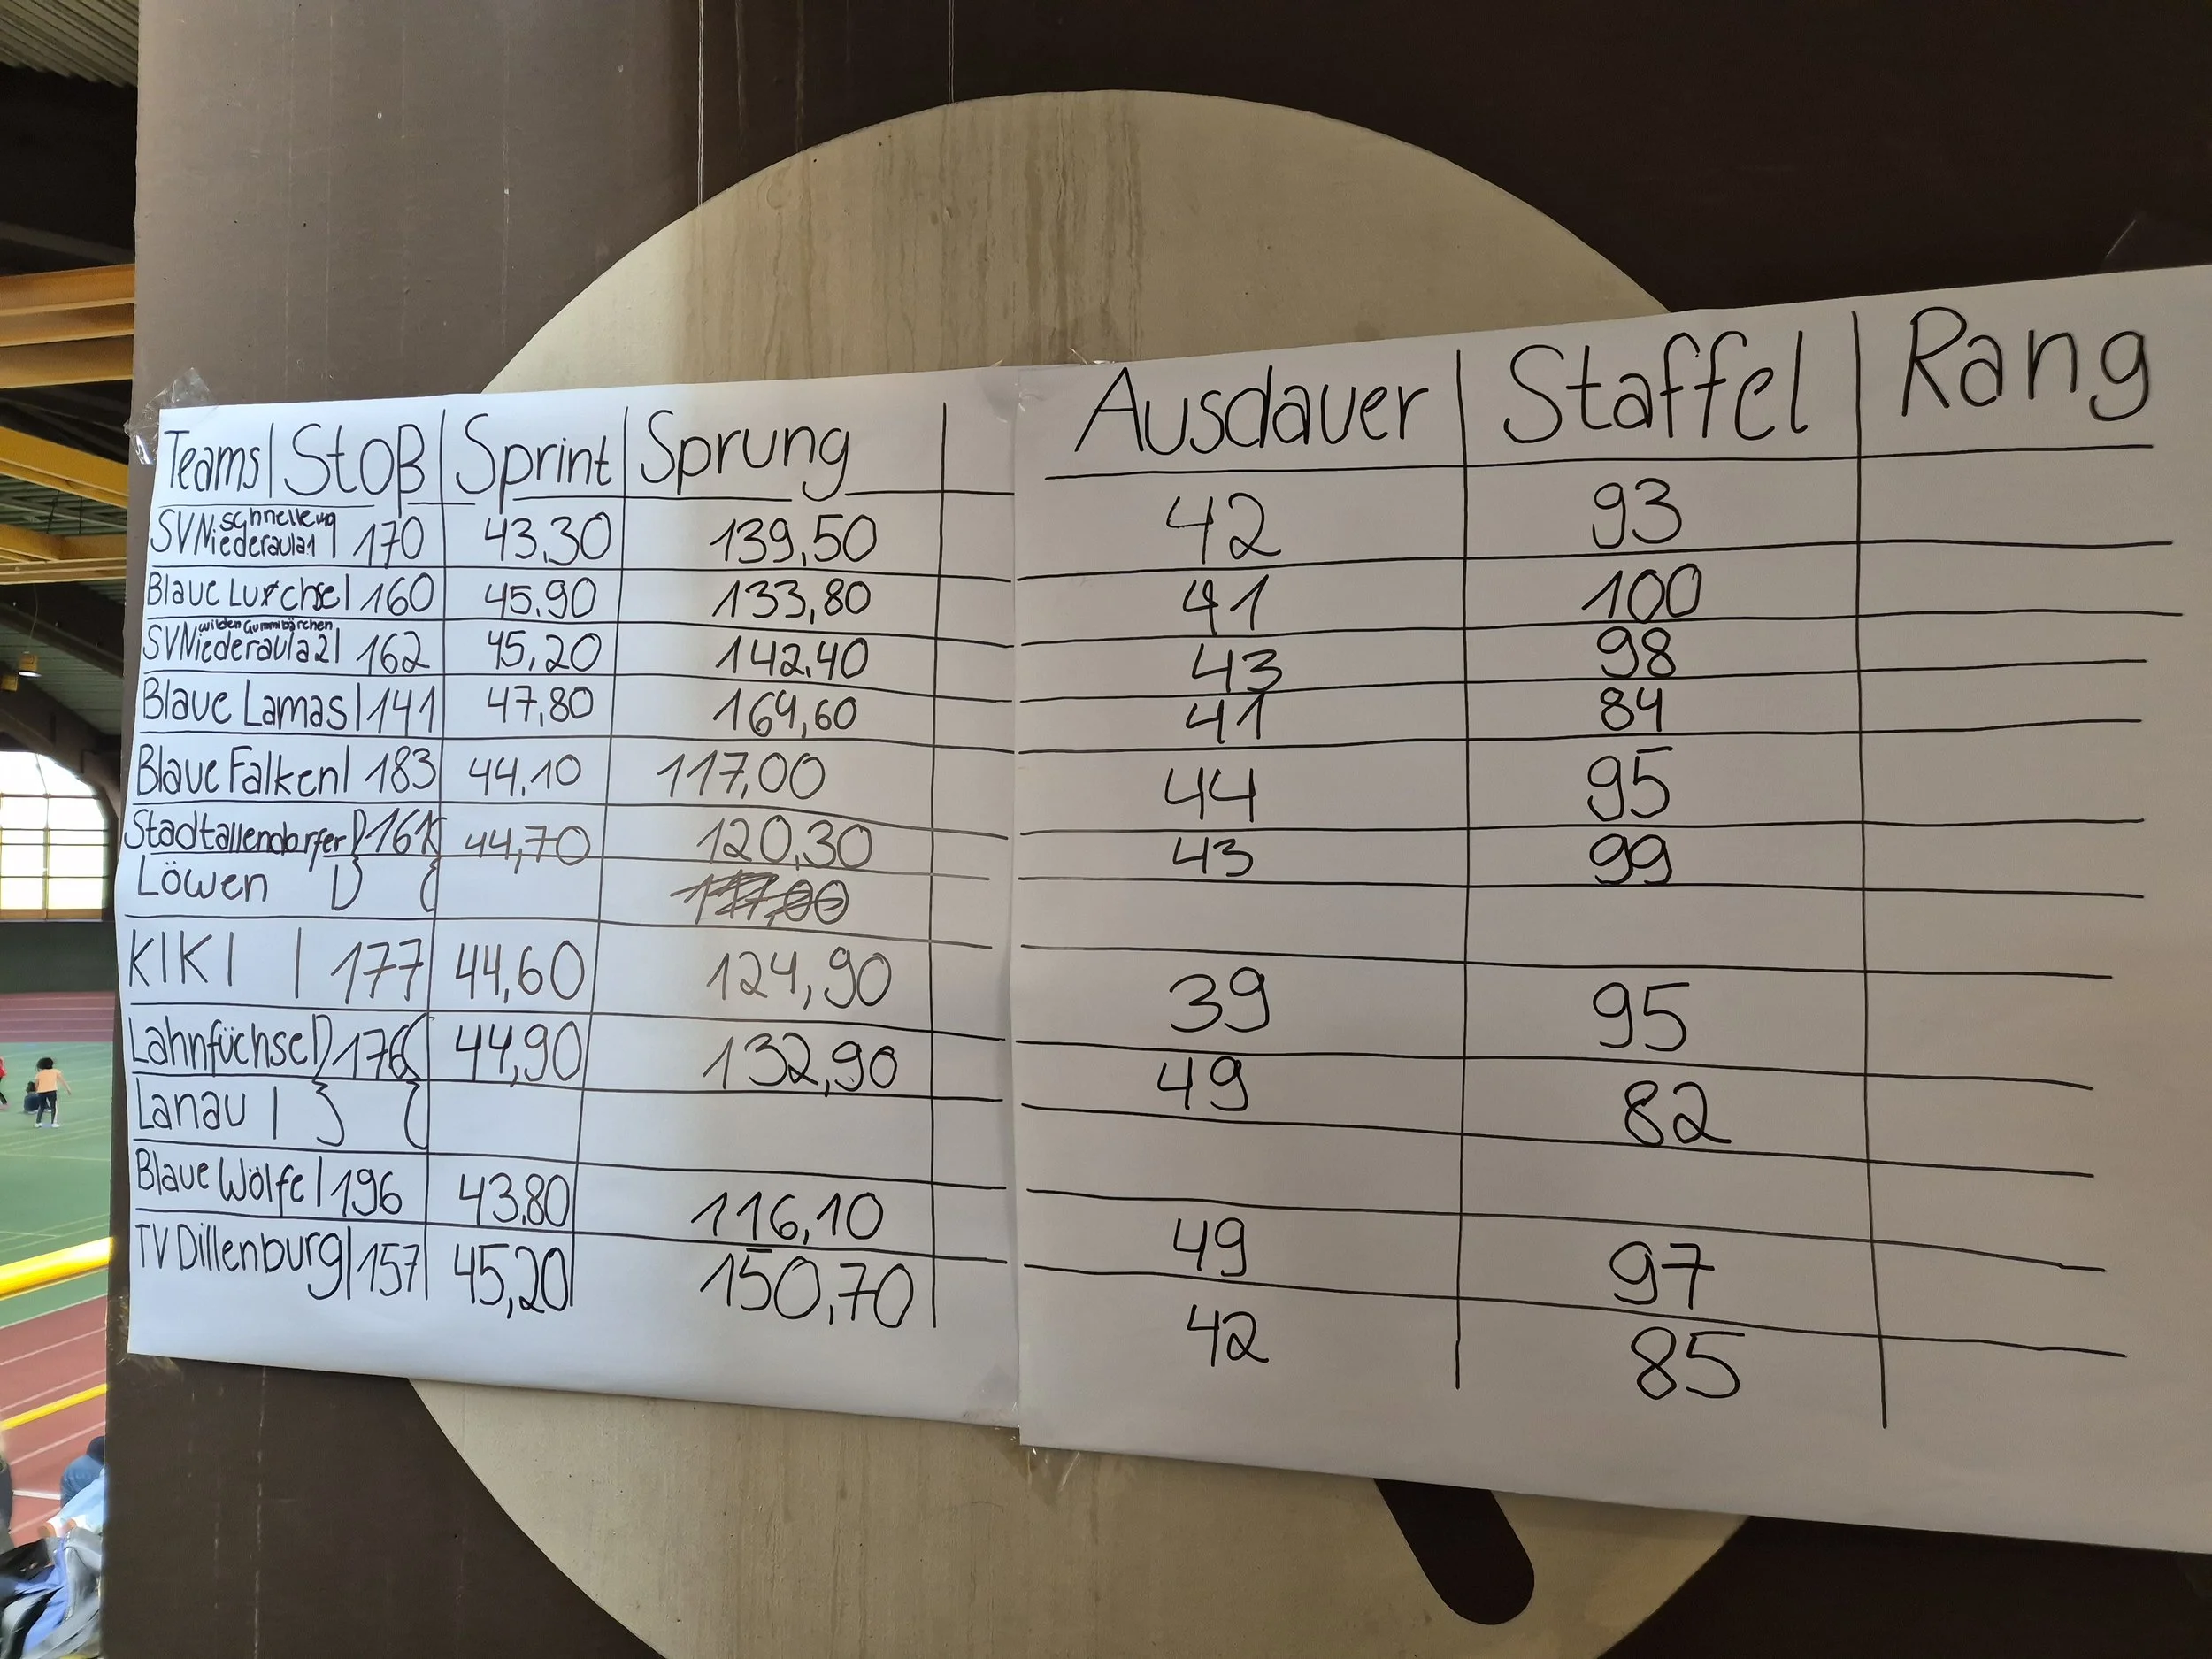 Teams Stoß Sprint Sprung Ausdauer Staffel Rang
SV Niederaula 1 170 43,30 139,50 42 93
Blaue Lurchse 160 45,90 133,80 41 100
wilden Gummibärchen
SV Niederaula 2 162 45,20 142,40 43 98
Blaue Lamas 141 47,80 164,60 41 84
Blaue Falken 183 44,10 117,00 44 95
Stadtallendorfer 161 44,70 120,30 43 99
Löwen
KIKI 177 44,60 124,90 39 95
Lahnfüchse 176 44,90 132,90 49 82
Lanau
Blaue Wölfe 196 43,80 116,10 49 97
TV Dillenburg 157 45,20 150,70 42 85